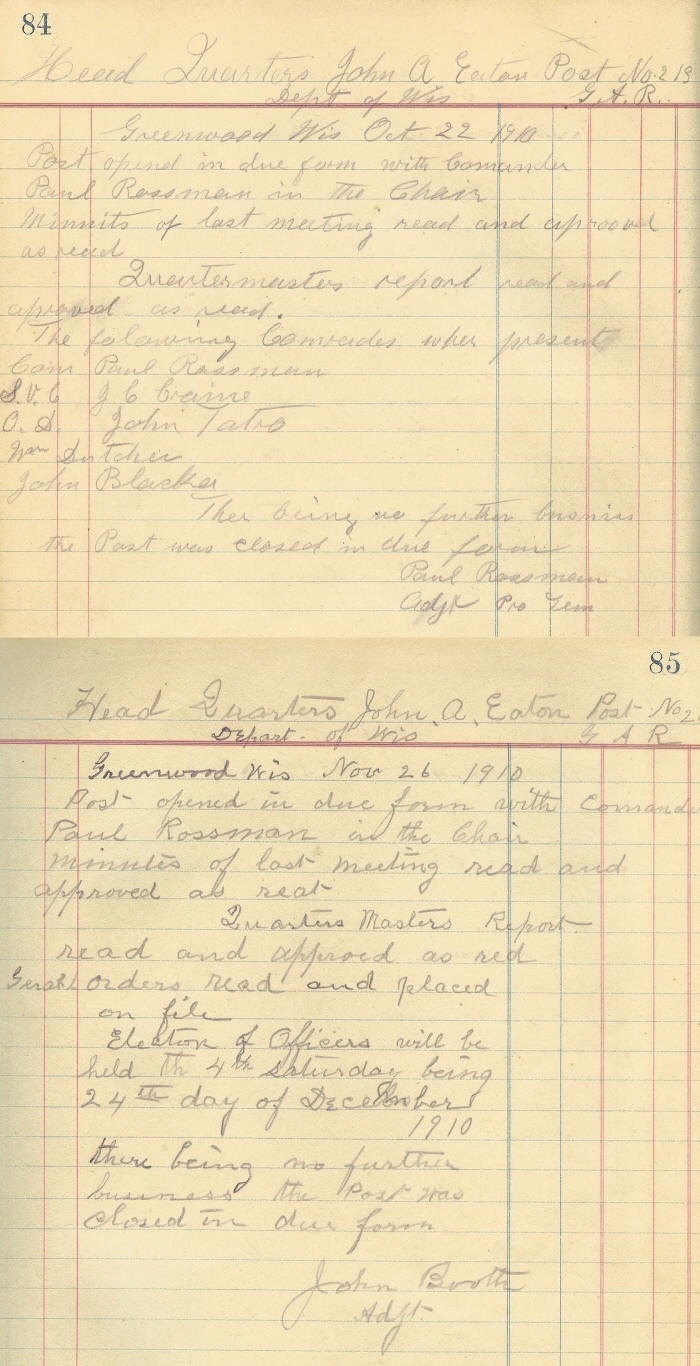 84
Head Quarters John A Eaton Post No. 213
Dept of Wis G. A. R.
Greenwood Wis Oct. 22 1910
Post opend in due form with Comander
Paul Rossman in the Chair
Minnits of last meeting read and aprooved
as read
Quartermasters report read and
aproved as read.
The folowing Comrades wher present
Com Paul Rossman
S.V.C J C Craine
O. D. John Tatro
Wm Dutcher
John Blacker
Ther being no further busniss
the Post was closed in due form
Paul Rossman
Adjt Pro Tem
85
Head Quarters John. A. Eaton Post No 2
Depart. of Wis G A R
Greenwood Wis Nov 26 1910
Post opened in due form with Comande
Paul Rossman in the Chair
minutes of last meeting read and
approved as reat
Quarters Masters Report
read and approed as red
orders read and placed
on file
Election of Officers will be
held th 4th Saturday being
24th day of December
1910
there being no further
business the Post was
closed in due form
John Booth
Adjt.